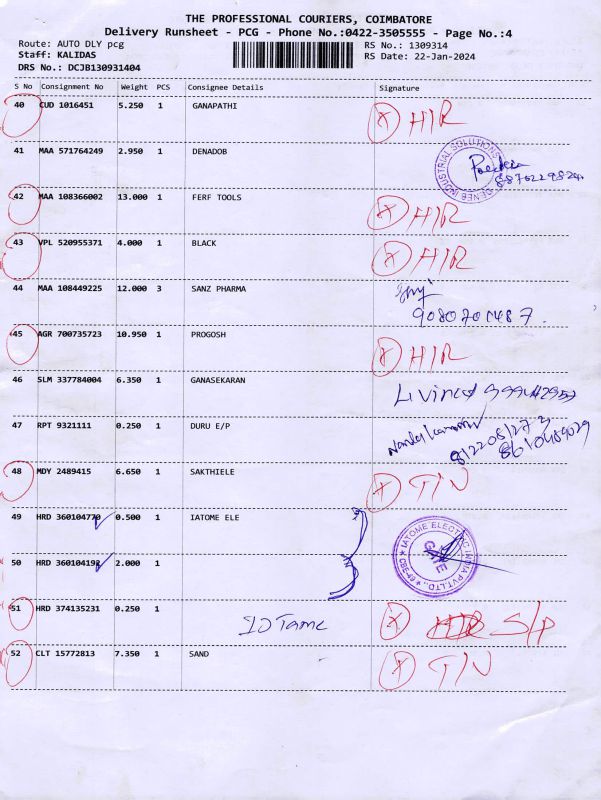 THE PROFESSIONAL COURIERS, COIMBATORE
Delivery Runsheet - PCG - Phone No.:0422-3505555 - Page No.:4
Route: AUTO DLY pcg RS No.: 1309314
Staff: KALIDAS RS Date: 22-Jan-2024
DRS No.: DCJB130931404
S No Consignment No Weight PCS Consignee Details Signature
40 CUD 1016451 5.250 1 GANAPATHI X H/R
41 MAA 571764249 2.950 1 DENADOB
DENEB INDUSTRIAL SOLUTIONS
42 MAA 108366002 13.000 1 FERF TOOLS X H/R
43 VPL 520955371 4.000 1 BLACK X H/R
44 MAA 108449225 12.000 3 SANZ PHARMA
45 AGR 700735723 10.950 1 PROGOSH X H/R
46 SLM 337784004 6.350 1 GANASEKARAN
47 RPT 9321111 0.250 1 DURU E/P
48 MDY 2489415 6.650 1 SAKTHIELE X T/N
49 HRD 360104770 0.500 1 IATOME ELE
IATOME ELECTRIC INDIA PVT.LTD.
50 HRD 360104192 2.000 1
51 HRD 374135231 0.250 1 IOTame X S/P
52 CLT 15772813 7.350 1 SAND X T/N